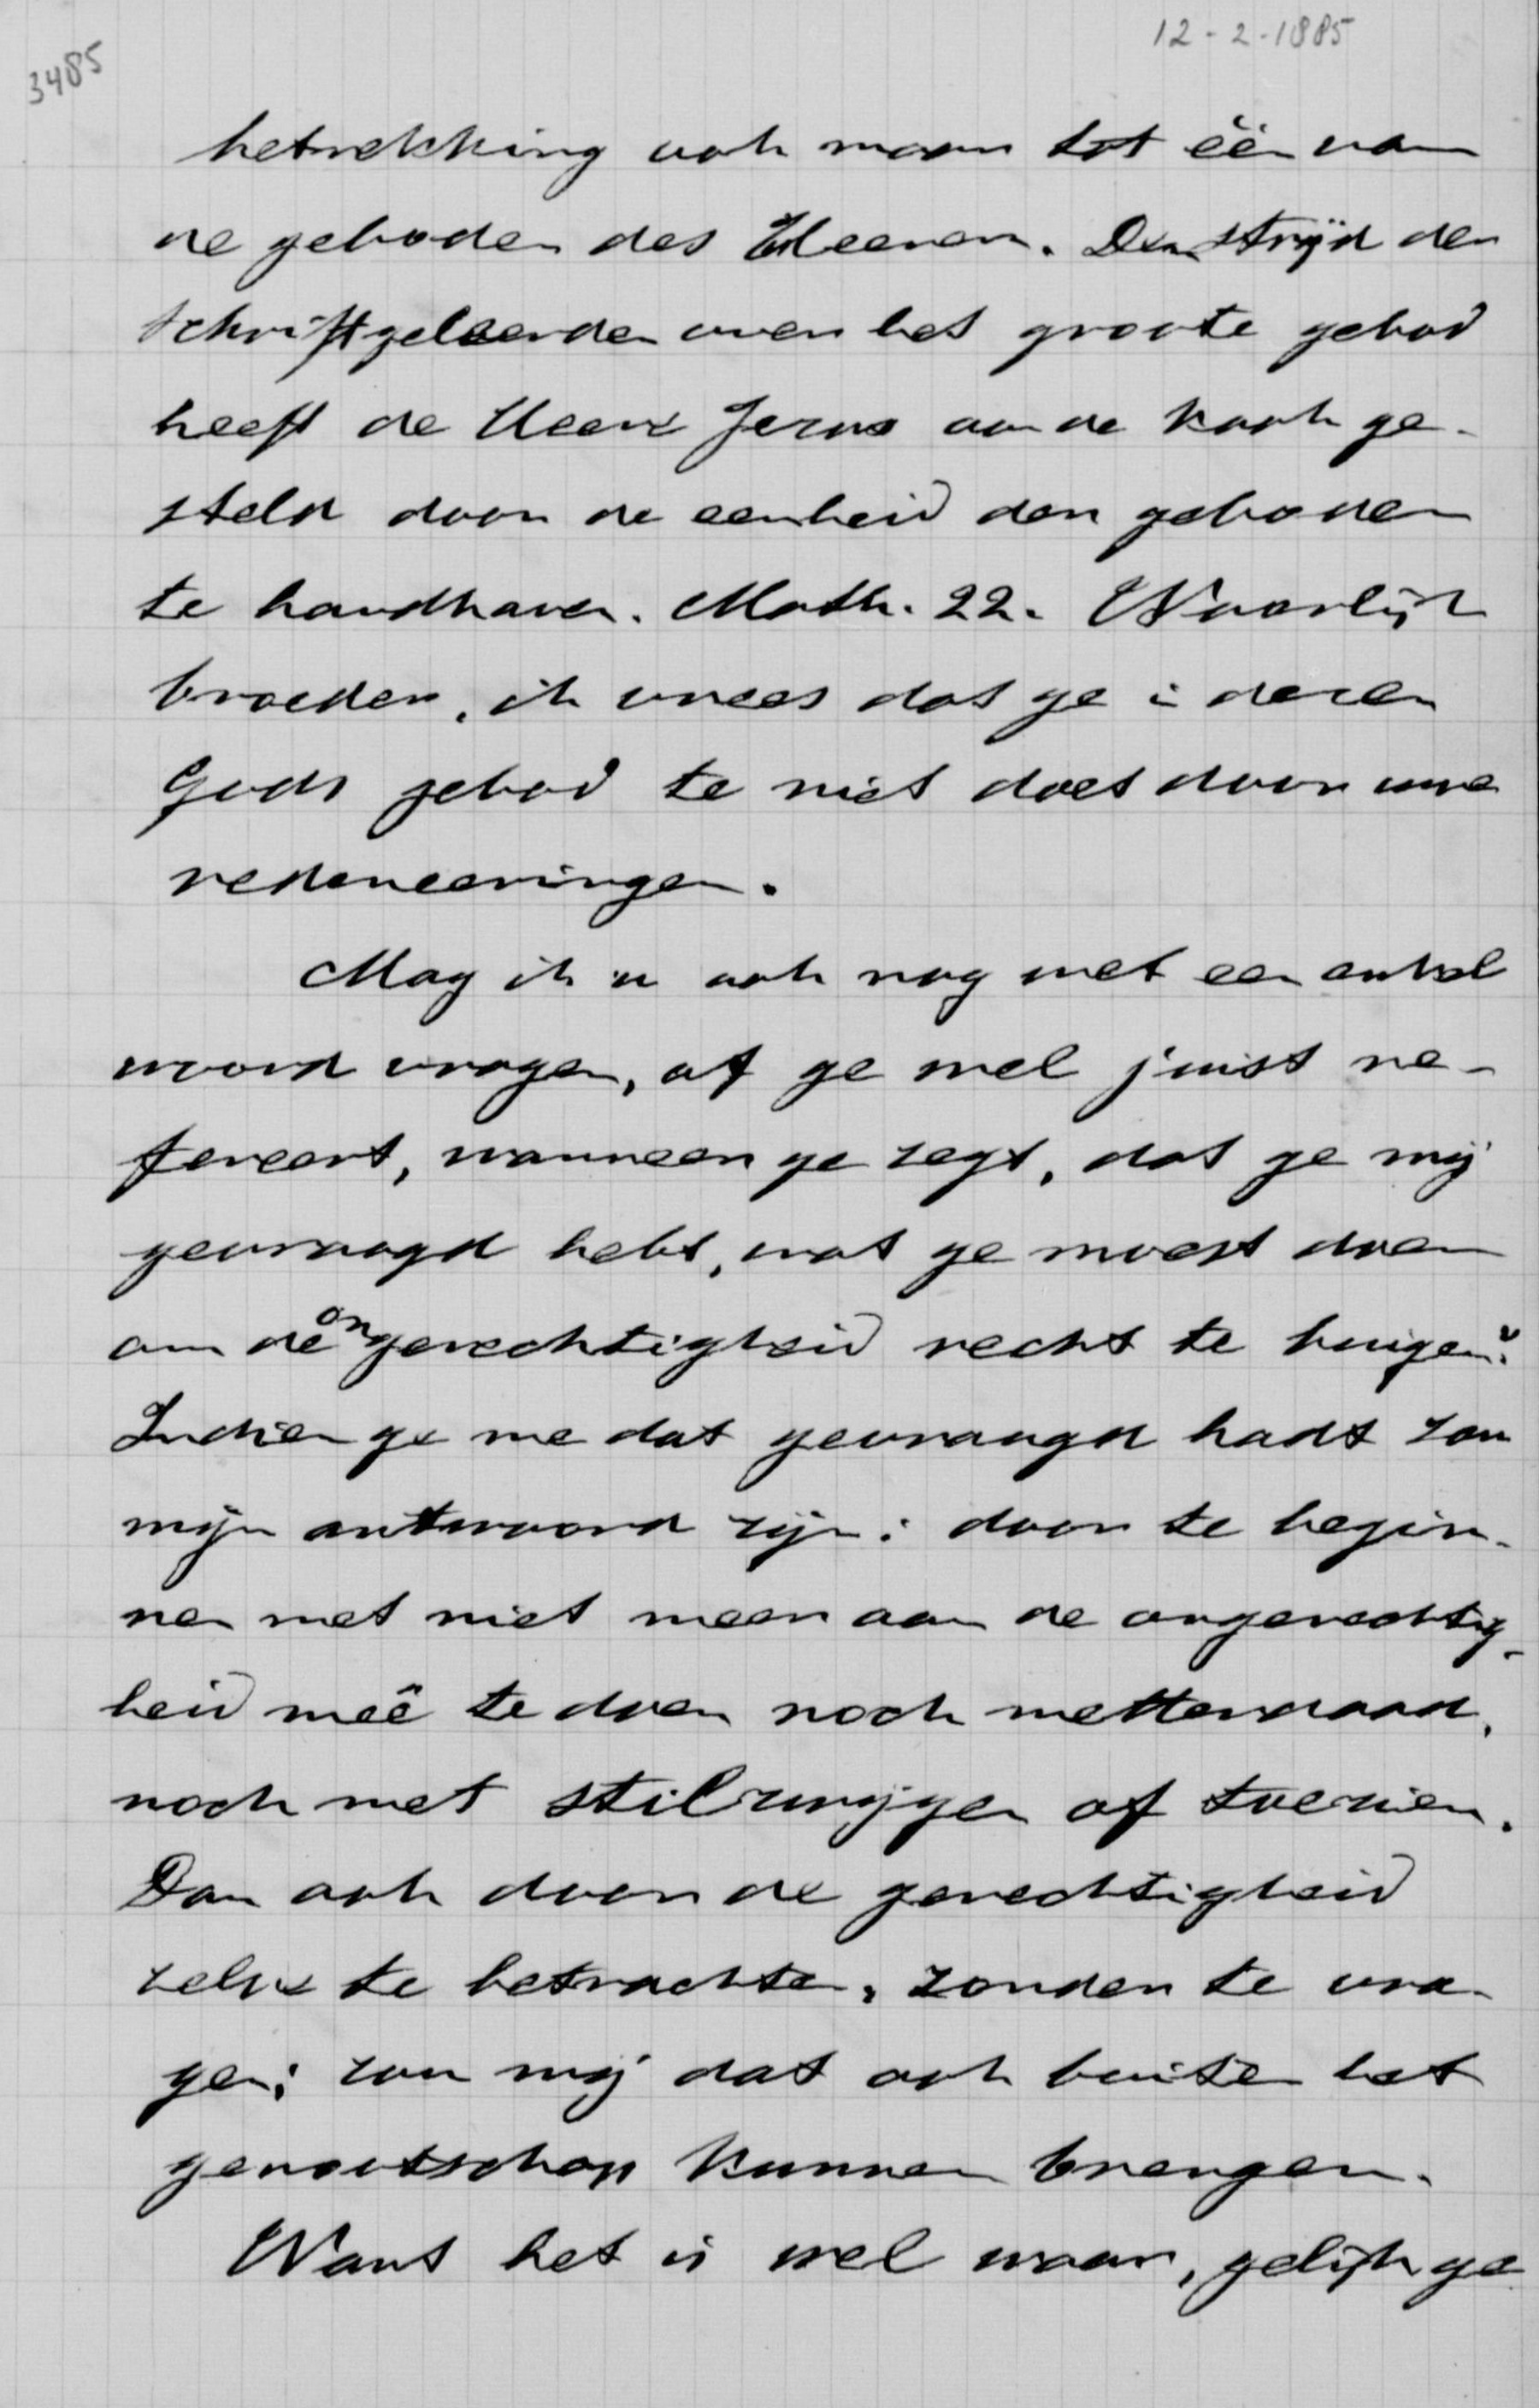 12-2-1885
3485
betrekking ook maar tot één van
de geboden des Heeren. Den strijd der
schriftgeleerden over het groote gebod
heeft de Heere Jezus aan de kaak ge-
steld door de eenheid der geboden
te handhaven. Matth. 22. Waarlijk
broeder, ik vrees dat ge in dezen
Gods gebod te niet doet door uwe
redeneeringen.
Mag ik u ook nog met een enkel
woord vragen, of ge wel juist re-
fereert, wanneer ge zegt, dat ge mij
gevraagd hebt, wat ge moest doen
om de ongerechtigheid recht te buigen?
Indien ge me dat gevraagd hadt zou
mijn antwoord zijn: door te begin-
nen met niet meer aan de ongerechtig-
heid meê te doen noch metterdaad,
noch met stilzwijgen of toezien.
Dan ook door de gerechtigheid
zelve te betrachten, zonder te vra-
gen; zou mij dat ook buiten het
genootschap kunnen brengen.
Want het is wel waar, gelijk ge